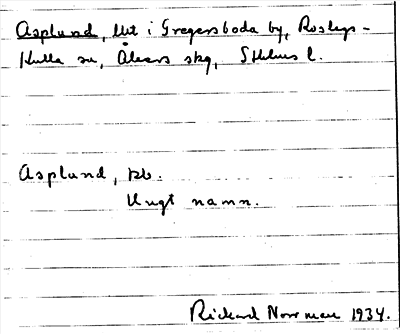 Asplund, lht i Gregersboda by, Roslags-
Kulla sn, Åkers skg, Sthlms l.
Asplund, 
Ungt namn.
Rickard Norrman 1934.